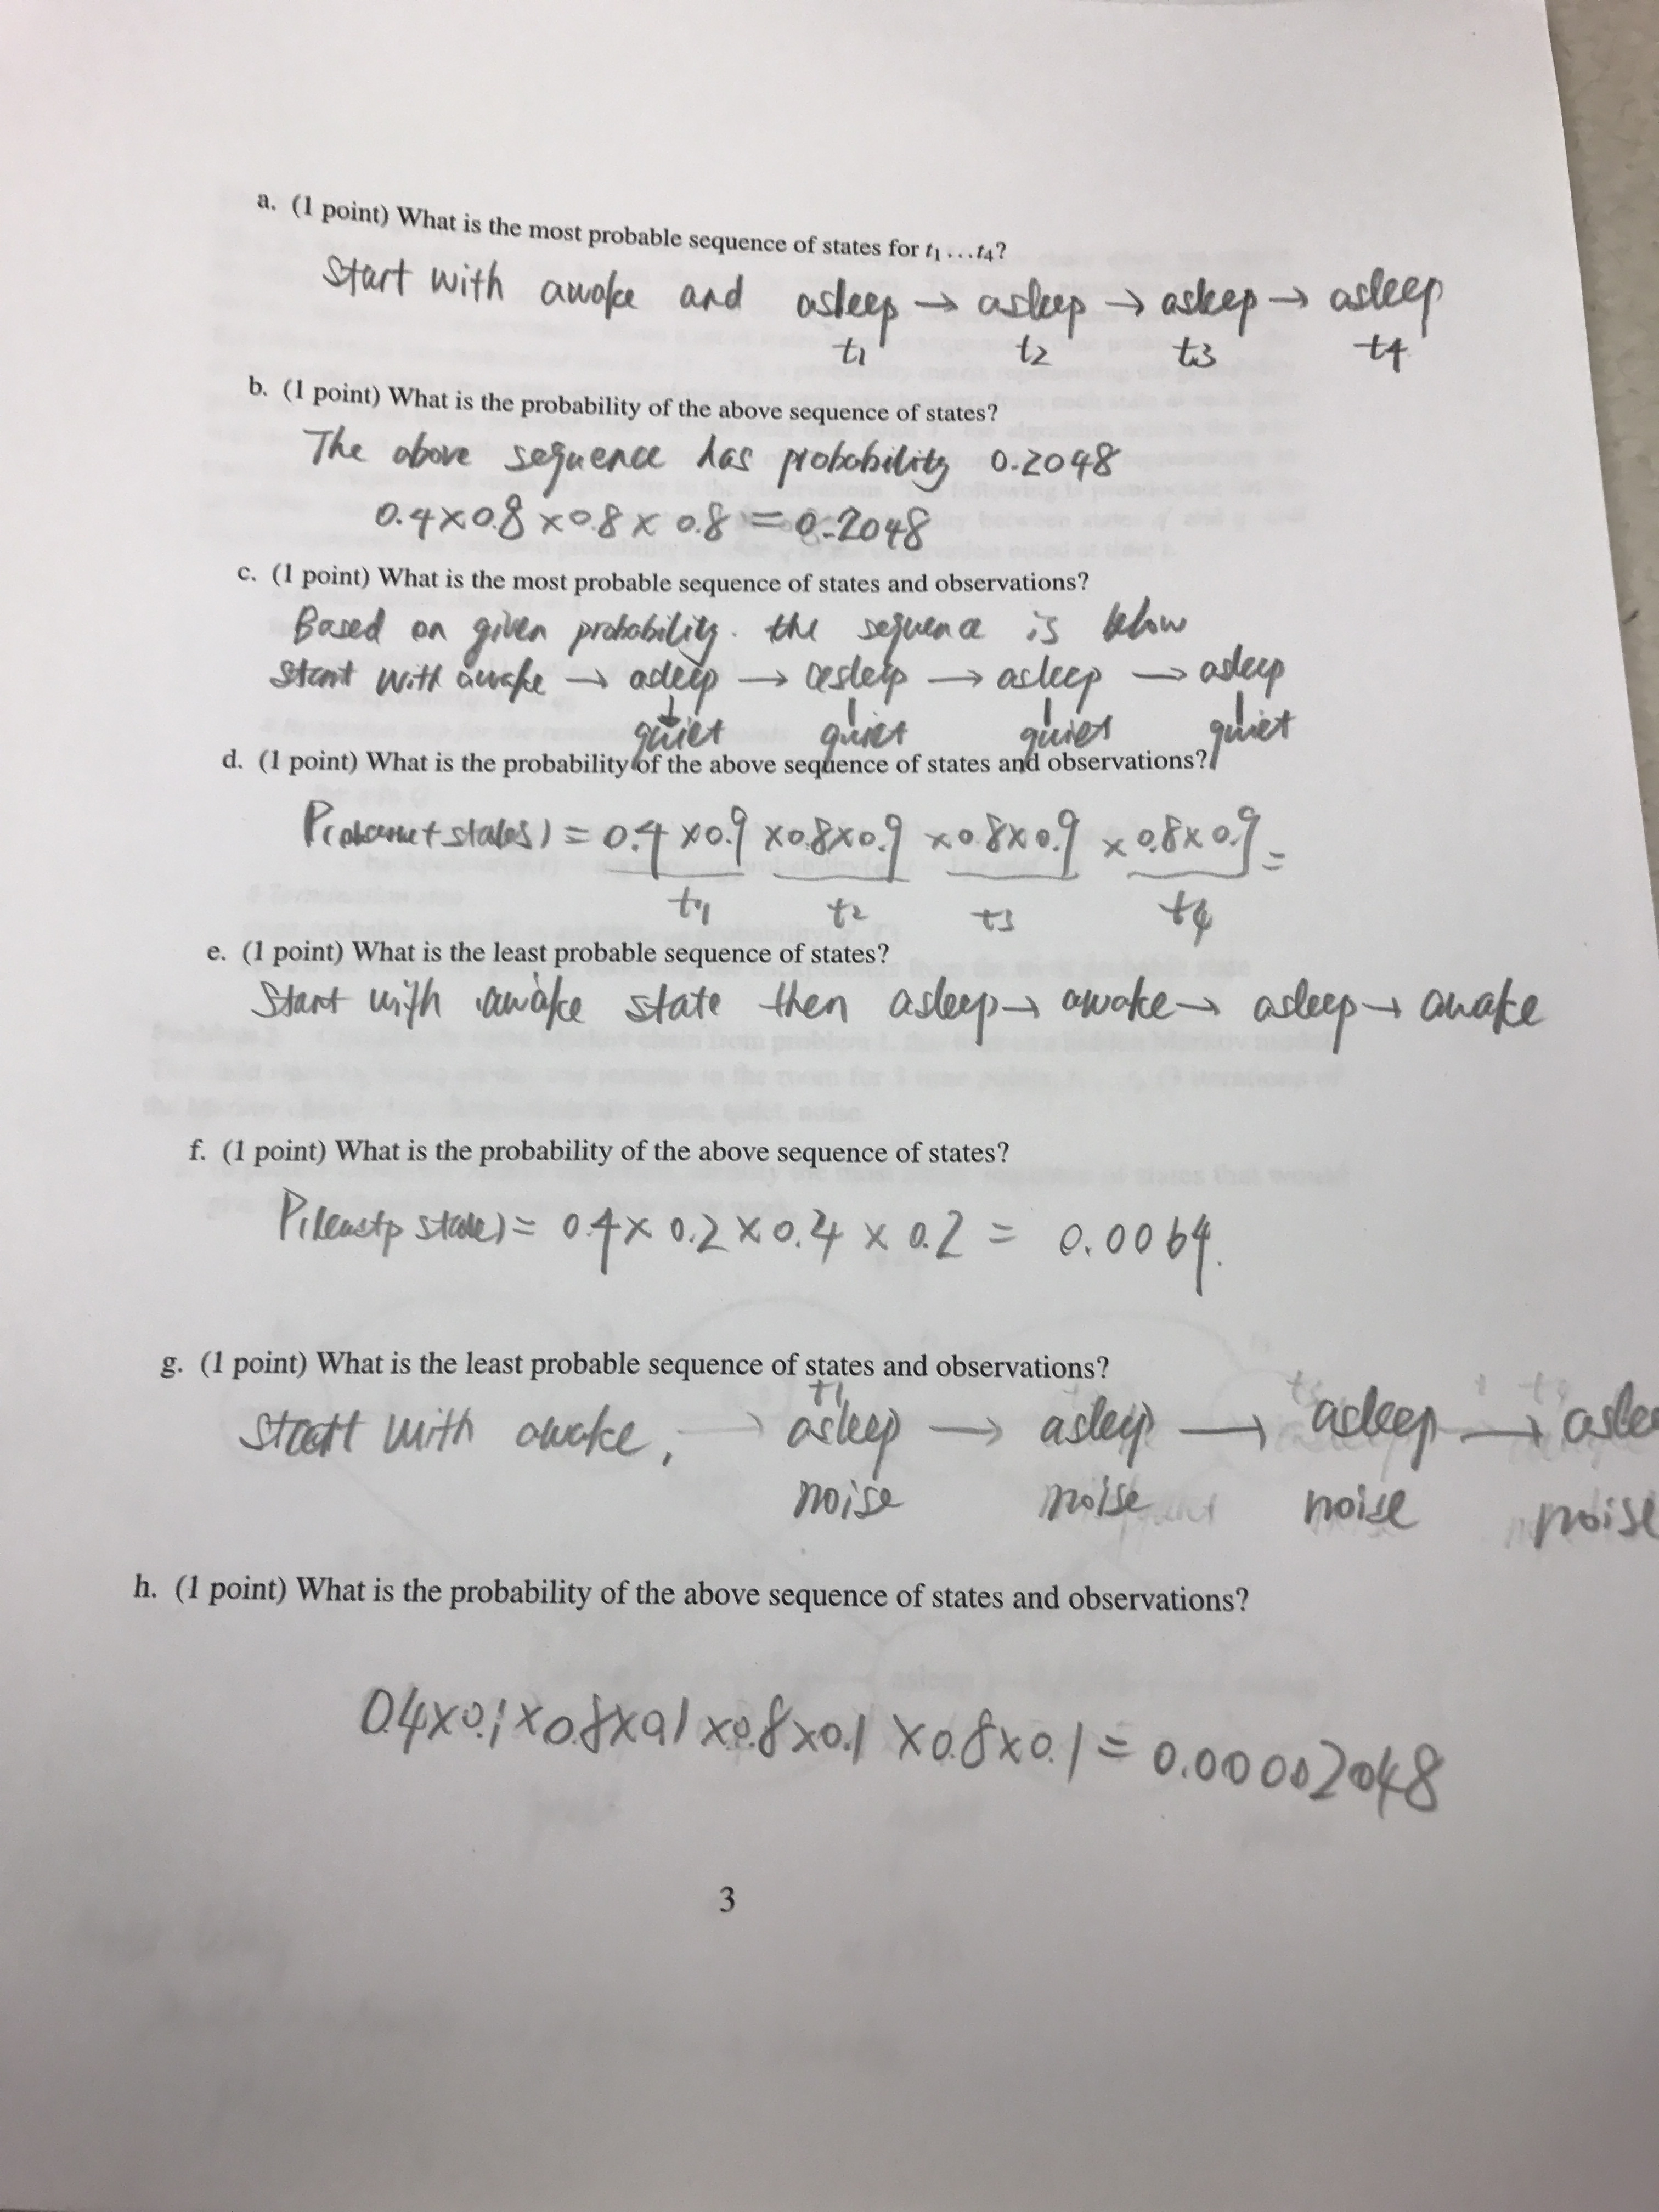 a. (1 point) What is the most probable sequence of states for t1 ...t4?
Start with awake and asleep → asleep → asleep → asleep
t1 t2 t3 t4
b. (1 point) What is the probability of the above sequence of states?
The above sequence has probability 0.2048
0.4×0.8×0.8×0.8=0.2048
c. (1 point) What is the most probable sequence of states and observations?
Based on given probability. the sequence is below
Start with awake → asleep → asleep → asleep → asleep
quiet quiet quiet quiet
d. (1 point) What is the probability of the above sequence of states and observations?
states) = 0.4×0.9 ×0.8×0.9 ×0.8×0.9 ×0.8×0.9 =
t1 t2 t3 t4
e. (1 point) What is the least probable sequence of states?
Start with awake state then asleep → awake → asleep → awake
f. (1 point) What is the probability of the above sequence of states?
P(leastp state) = 0.4× 0.2×0.4 × 0.2 = 0.0064.
g. (1 point) What is the least probable sequence of states and observations?
t1
Start with awake, → asleep → asleep → asleep → aslee
noise noise noise noise
h. (1 point) What is the probability of the above sequence of states and observations?
0.4×0.1×0.8×0.1×0.8×0.1×0.8×0.1= 0.00002048
3